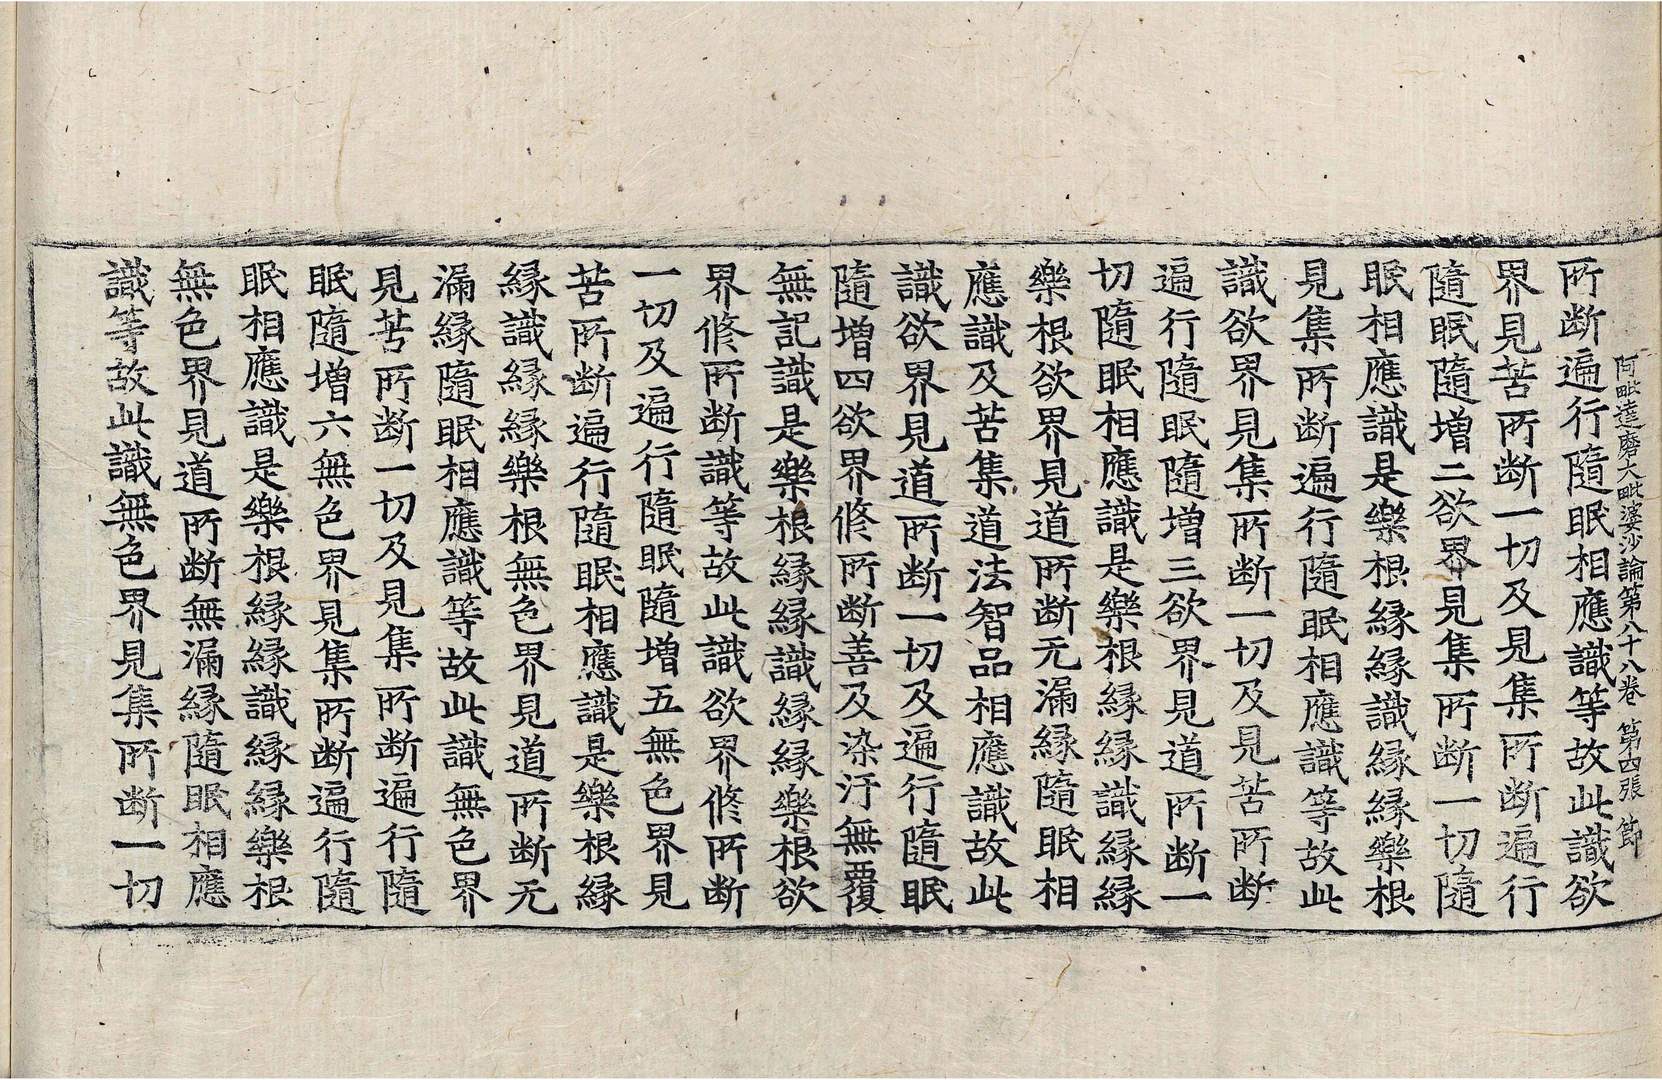 阿毗達磨大毗婆沙論第八十八卷 第四張 節
所断遍行隨眠相應識等故此識欲
界見苦所断一切及見集所断遍行
隨眠隨増二欲界見集所断一切隨
眠相應識是樂根緣緣識緣緣樂根
見集所断遍行隨眠相應識等故此
識欲界見集所断一切及見苦所断
遍行隨眠隨増三欲界見道所断一
切隨眠相應識是樂根緣緣識緣緣
樂根欲界見道所断无漏緣隨眠相
應識及苦集道法智品相應識故此
識欲界見道所断一切及遍行隨眠
隨増四欲界修所断善及染汙無覆
無記識是樂根緣緣識緣緣樂根欲
界修所断識等故此識欲界修所断
一切及遍行隨眠隨増五無色界見
苦所断遍行隨眠相應識是樂根緣
緣識緣緣樂根無色界見道所断无
漏緣隨眠相應識等故此識無色界
見苦所断一切及見集所断遍行隨
眠隨増六無色界見集所断遍行隨
眠相應識是樂根緣緣識緣緣樂根
無色界見道所断無漏緣隨眠相應
識等故此識無色界見集所断一切